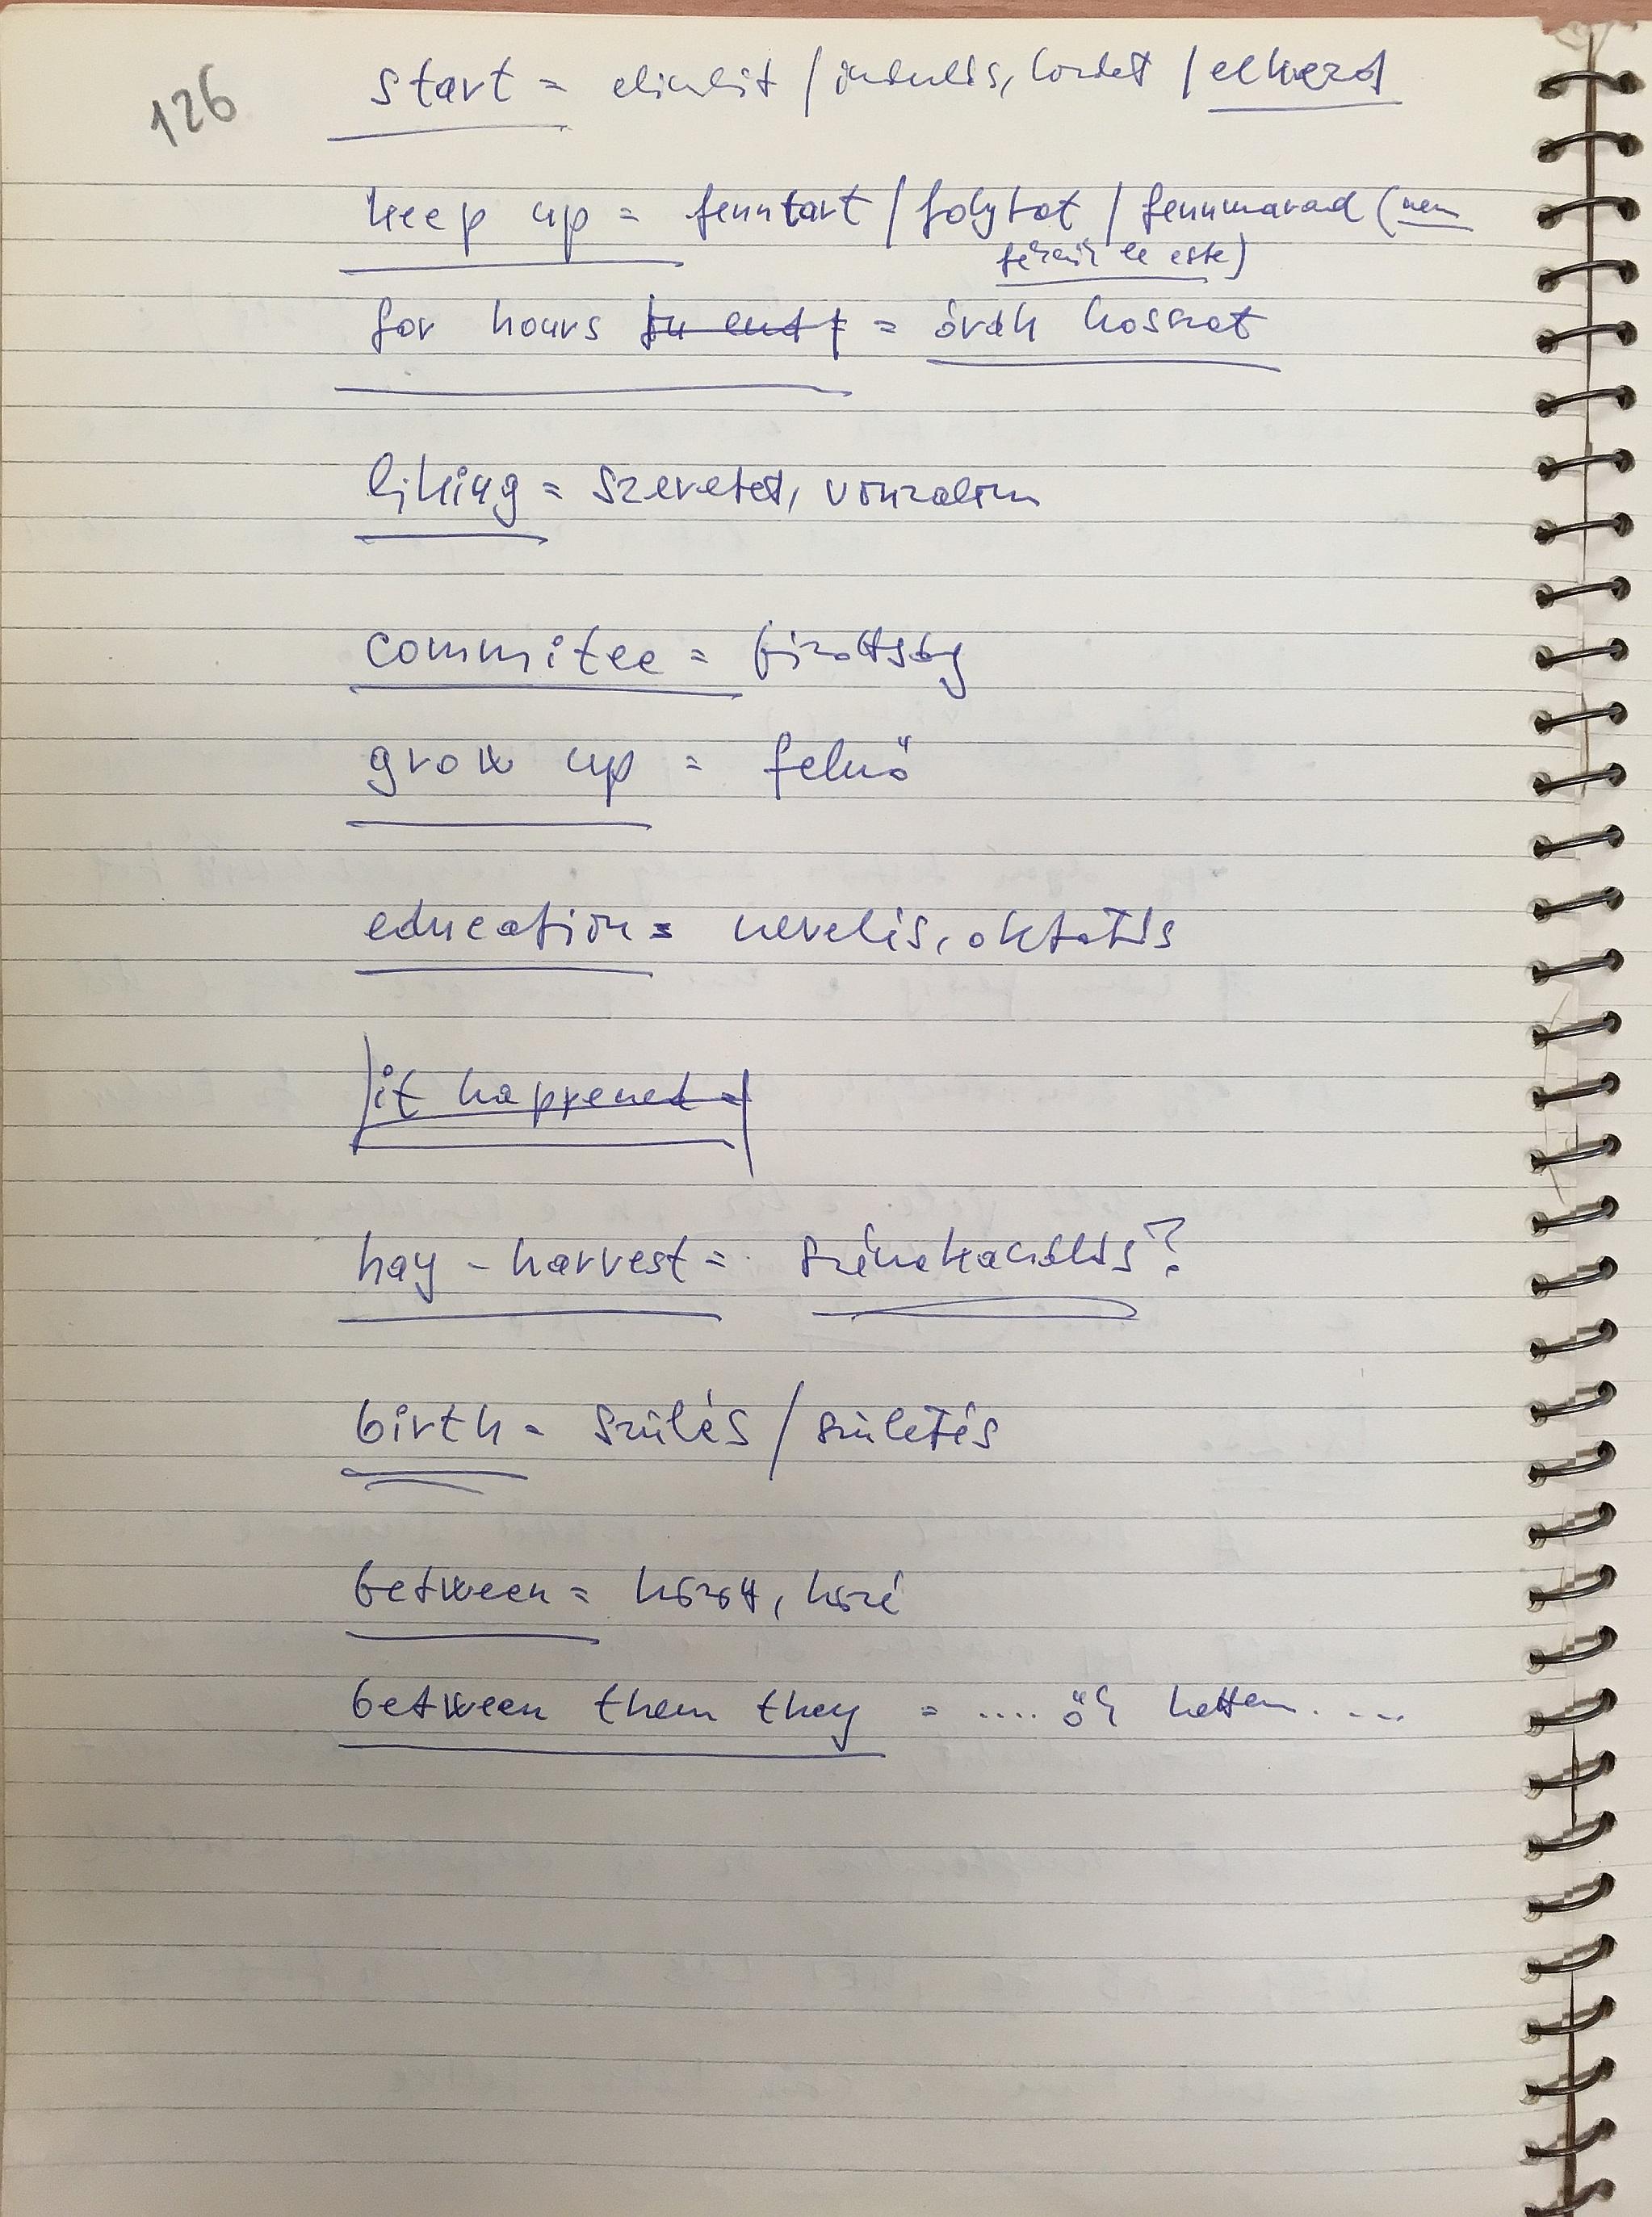 126
start = elindít / indulás, kezdet / elkezd
keep up = fenntart / folytat / fennmarad (nem
fekszik le este)
for hours = órák hosszat
liking = szeretet, vonzalom
commitee = bizottság
grow up = felnő
education = nevelés, oktatás
it happened =
hay-harvest = szénakaszálás?
birth = szülés / születés
between = között, közé
between them they = .... ők ketten ....